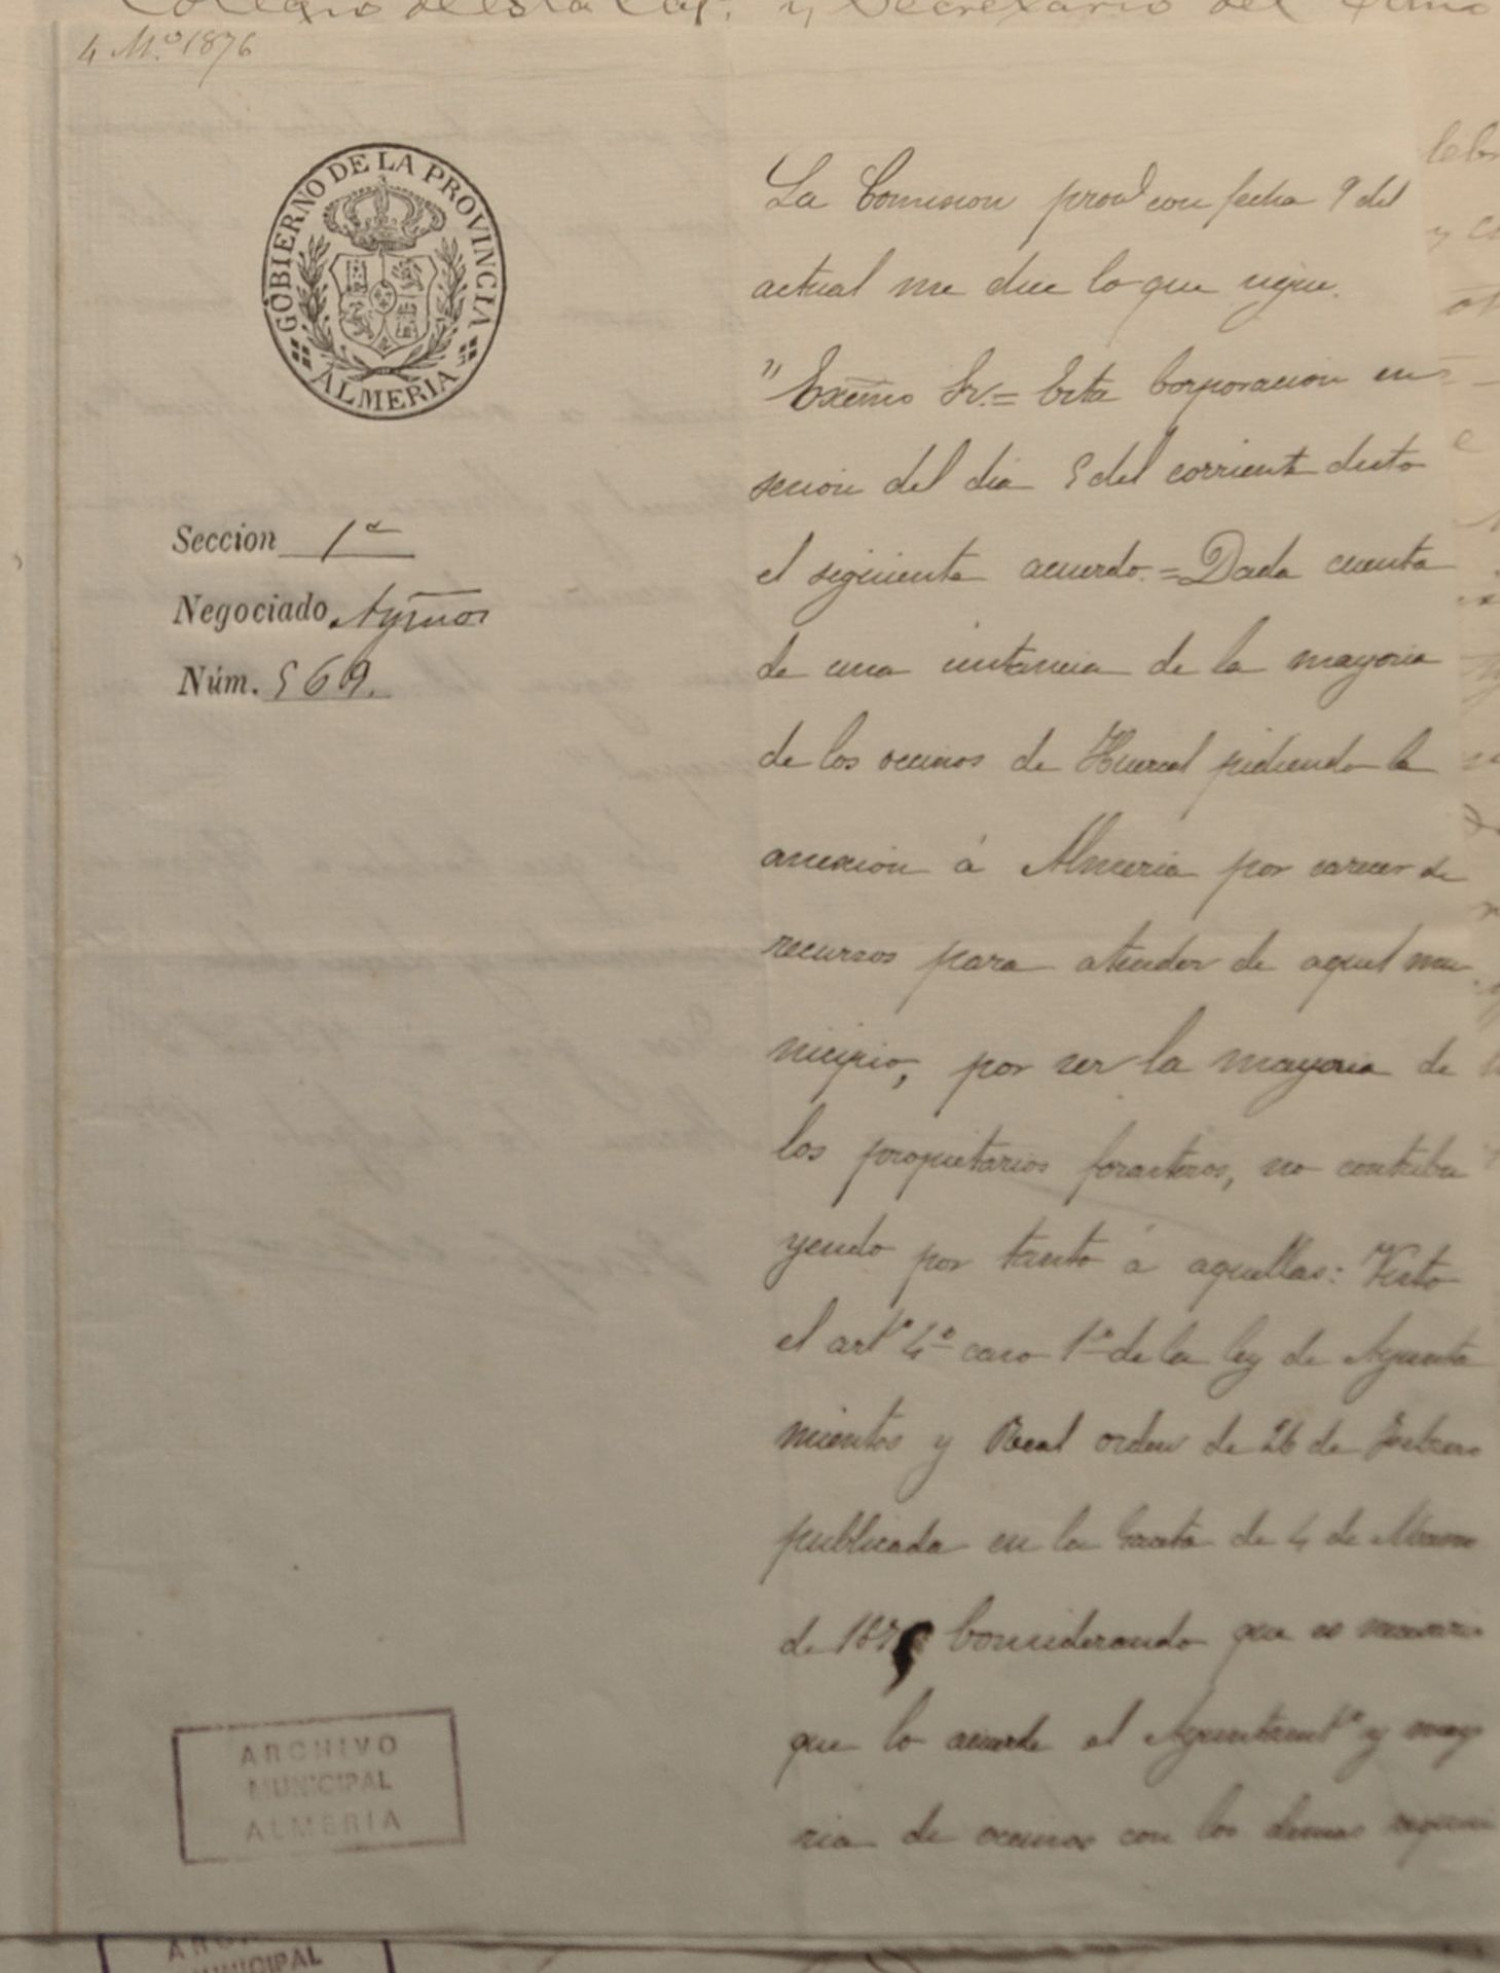 Colegio de esta Cap. y Secretario del
4 M.º 1876
GOBIERNO DE LA PROVINCIA
ALMERIA
Seccion 1ª
Negociado Aymos
Núm. 569.
La Comision provl con fecha 9 del
actual me dice lo que sigue.
"Excmo Sr.= Esta Corporacion en
sesion del dia 5 del corriente dicto
el siguiente acuerdo.= Dada cuenta
de una instancia de la mayoria
de los vecinos de Huercal pidiendo la
anexion á Almeria por carecer de
recursos para atender de aquel mu
nicipio, por ser la mayoria de
los propietarios forasteros, no contribu
yendo por tanto á aquellas: Visto
el artº 4º caso 1º de la ley de Ayunta
mientos y Real orden de 26 de Febrero
publicada en la Gaceta de 4 de Marzo
de 187 Considerando que es necesario
que lo acuerde el Ayuntamtº y mayo
ria de vecinos con los demas requisi
ARCHIVO
MUNICIPAL
ALMERIA
MUNICIPAL